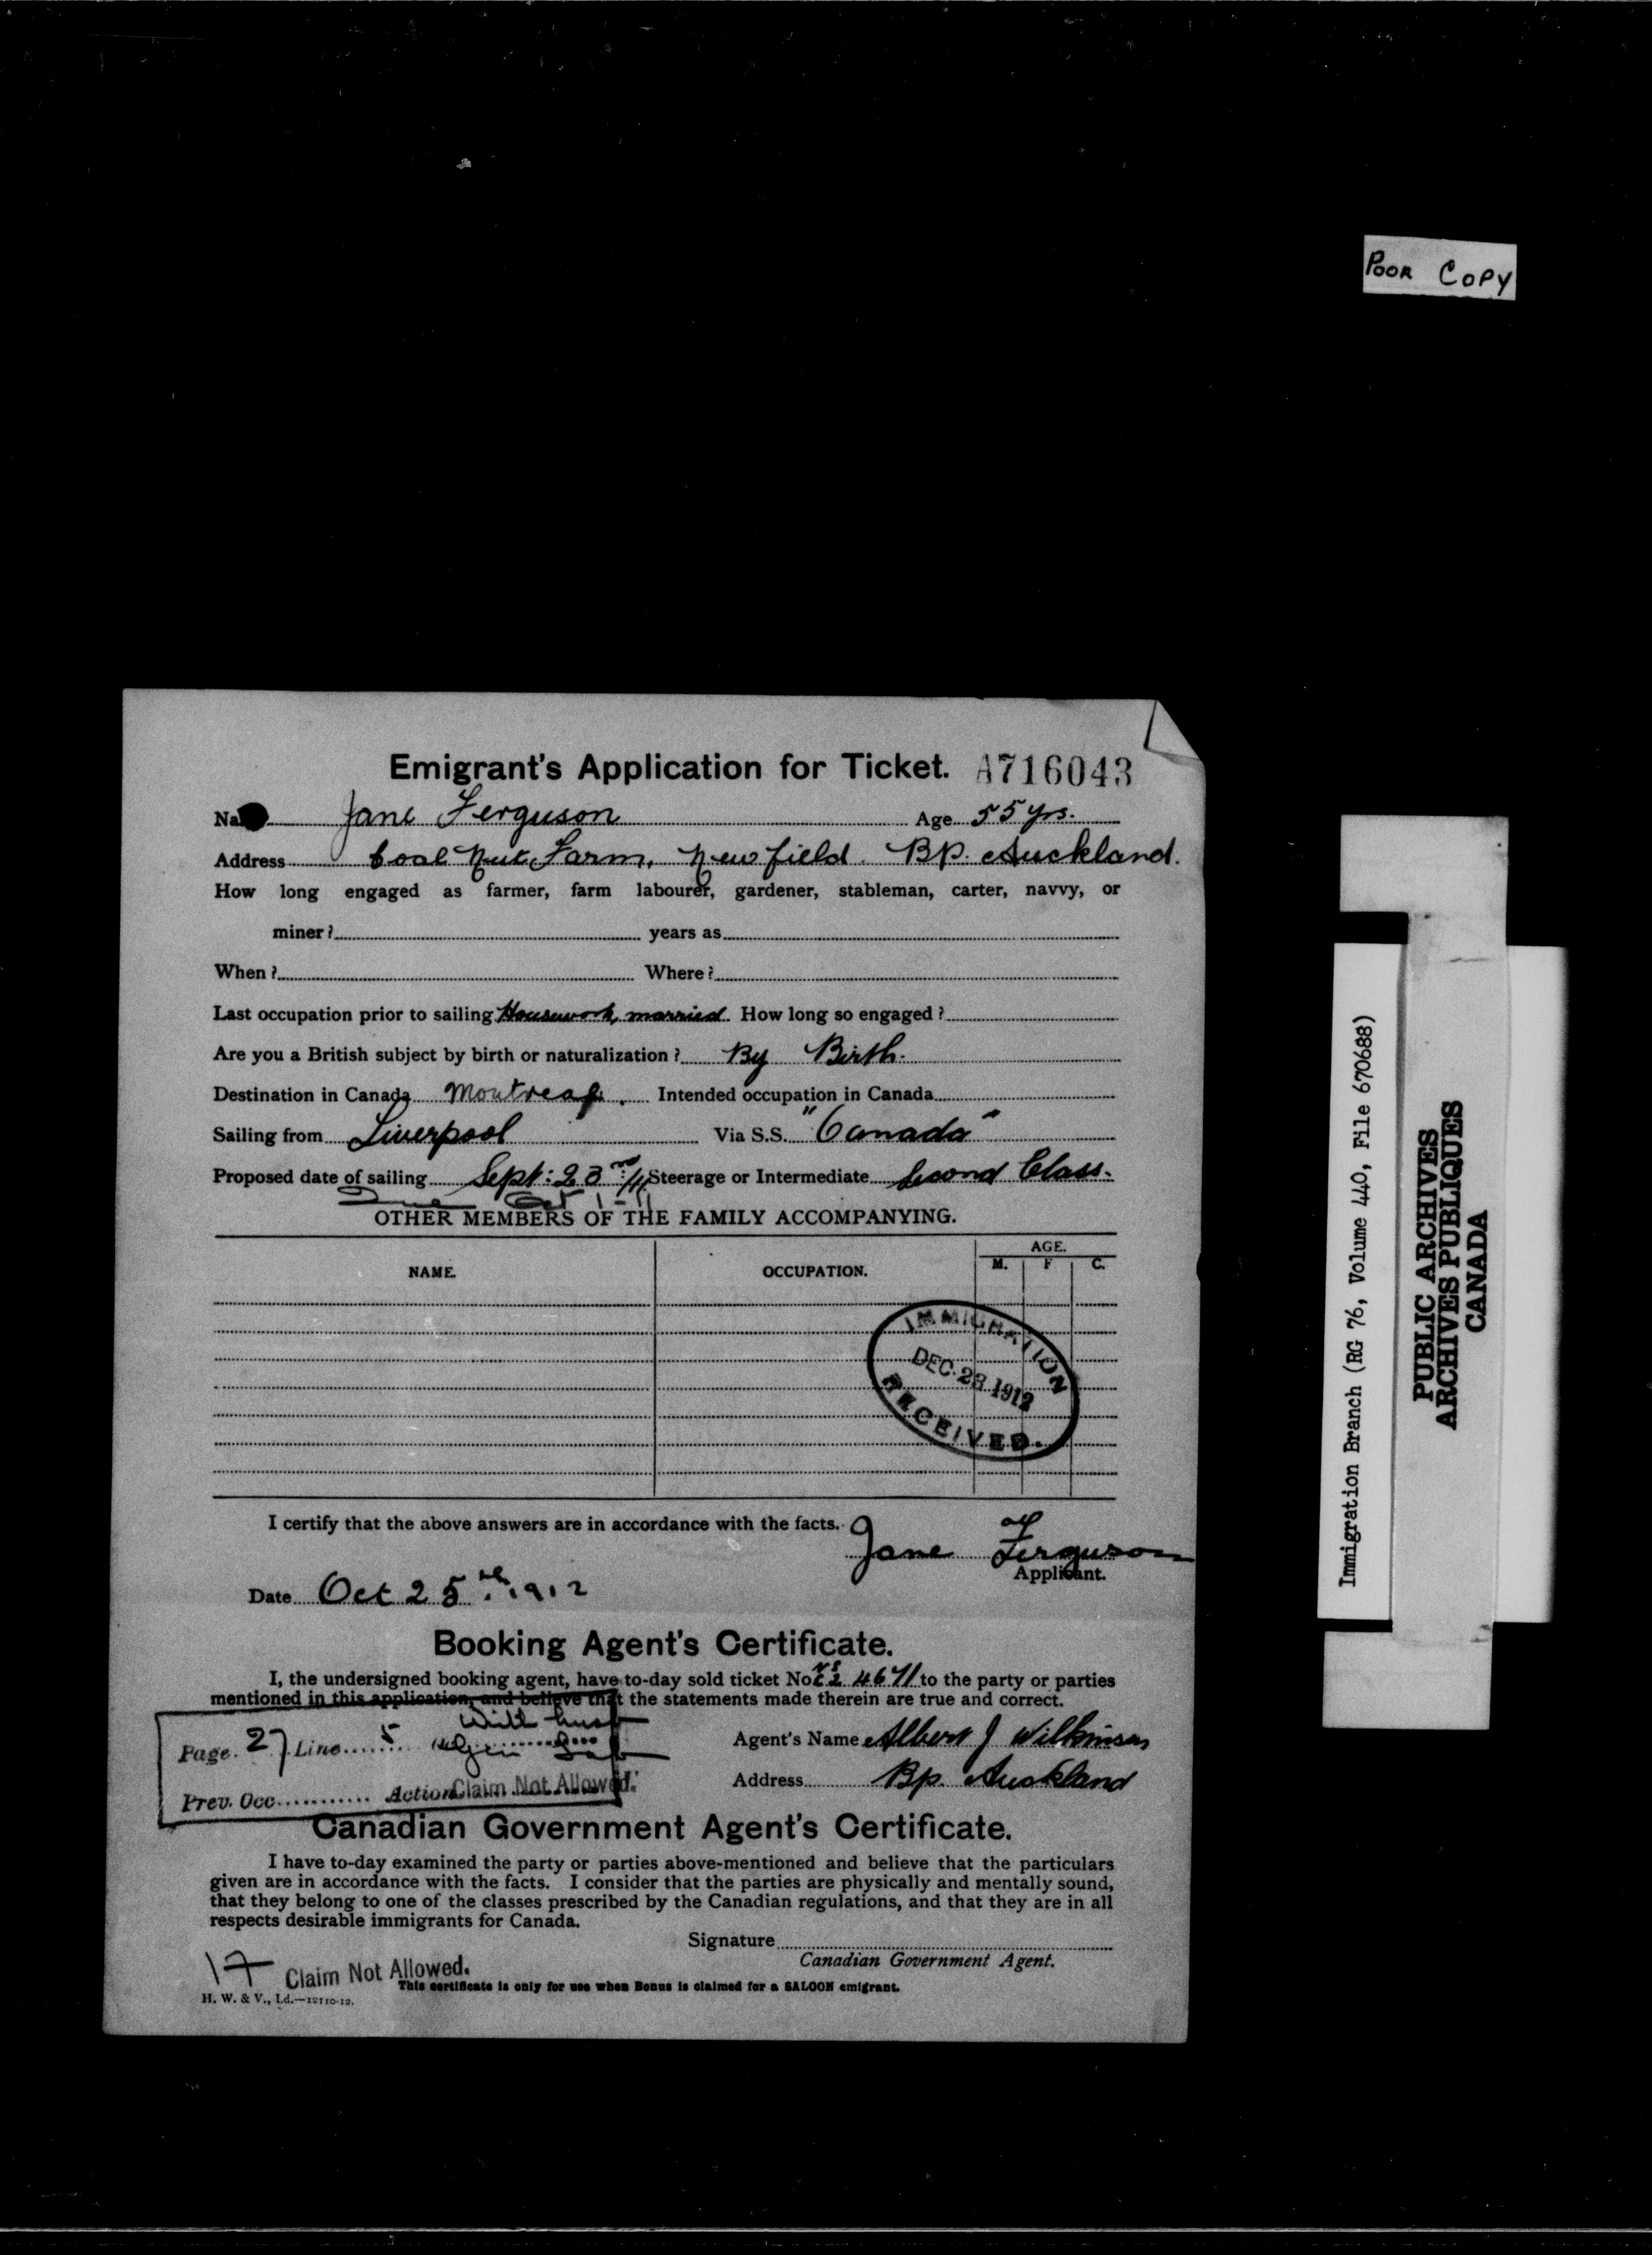 POOR COPY
Emigrant's Application for Ticket. A716043
Na Jane Ferguson Age 55 yrs.
Address Coal Nut Farm, Newfield. Bp. Auckland.
How long engaged as farmer, farm labourer, gardener, stableman, carter, navvy, or
miner? years as
When? Where?
Last occupation prior to sailing Housework, married. How long so engaged?
Are you a British subject by birth or naturalization? By Birth.
Destination in Canada Montreal. Intended occupation in Canada
Sailing from Liverpool Via S.S. "Canada"
Proposed date of sailing Sept: 23rd /11 Steerage or Intermediate Second Class.
Due Oct 1-11
OTHER MEMBERS OF THE FAMILY ACCOMPANYING.
NAME. OCCUPATION. AGE.
M. F C.
IMMIGRATION
DEC. 23 1912
RECEIVED.
I certify that the above answers are in accordance with the facts.
Jane Ferguson
Applicant.
Date Oct 25 1912
Booking Agent's Certificate.
I, the undersigned booking agent, have to-day sold ticket No 4671 to the party or parties
mentioned in this application, and believe that the statements made therein are true and correct.
With husb
Page 27 Line 5 Gen Lab
Agent's Name Albert J Wilkinson
Prev. Occ. Action Claim Not Allowed.
Address Bp. Auckland
Canadian Government Agent's Certificate.
I have to-day examined the party or parties above-mentioned and believe that the particulars
given are in accordance with the facts. I consider that the parties are physically and mentally sound,
that they belong to one of the classes prescribed by the Canadian regulations, and that they are in all
respects desirable immigrants for Canada.
Signature
Canadian Government Agent.
17 Claim Not Allowed.
This certificate is only for use when Bonus is claimed for a SALOON emigrant.
H. W. & V., Ld.—12110-12.
Immigration Branch (RG 76, Volume 440, File 670688)
PUBLIC ARCHIVES
ARCHIVES PUBLIQUES
CANADA